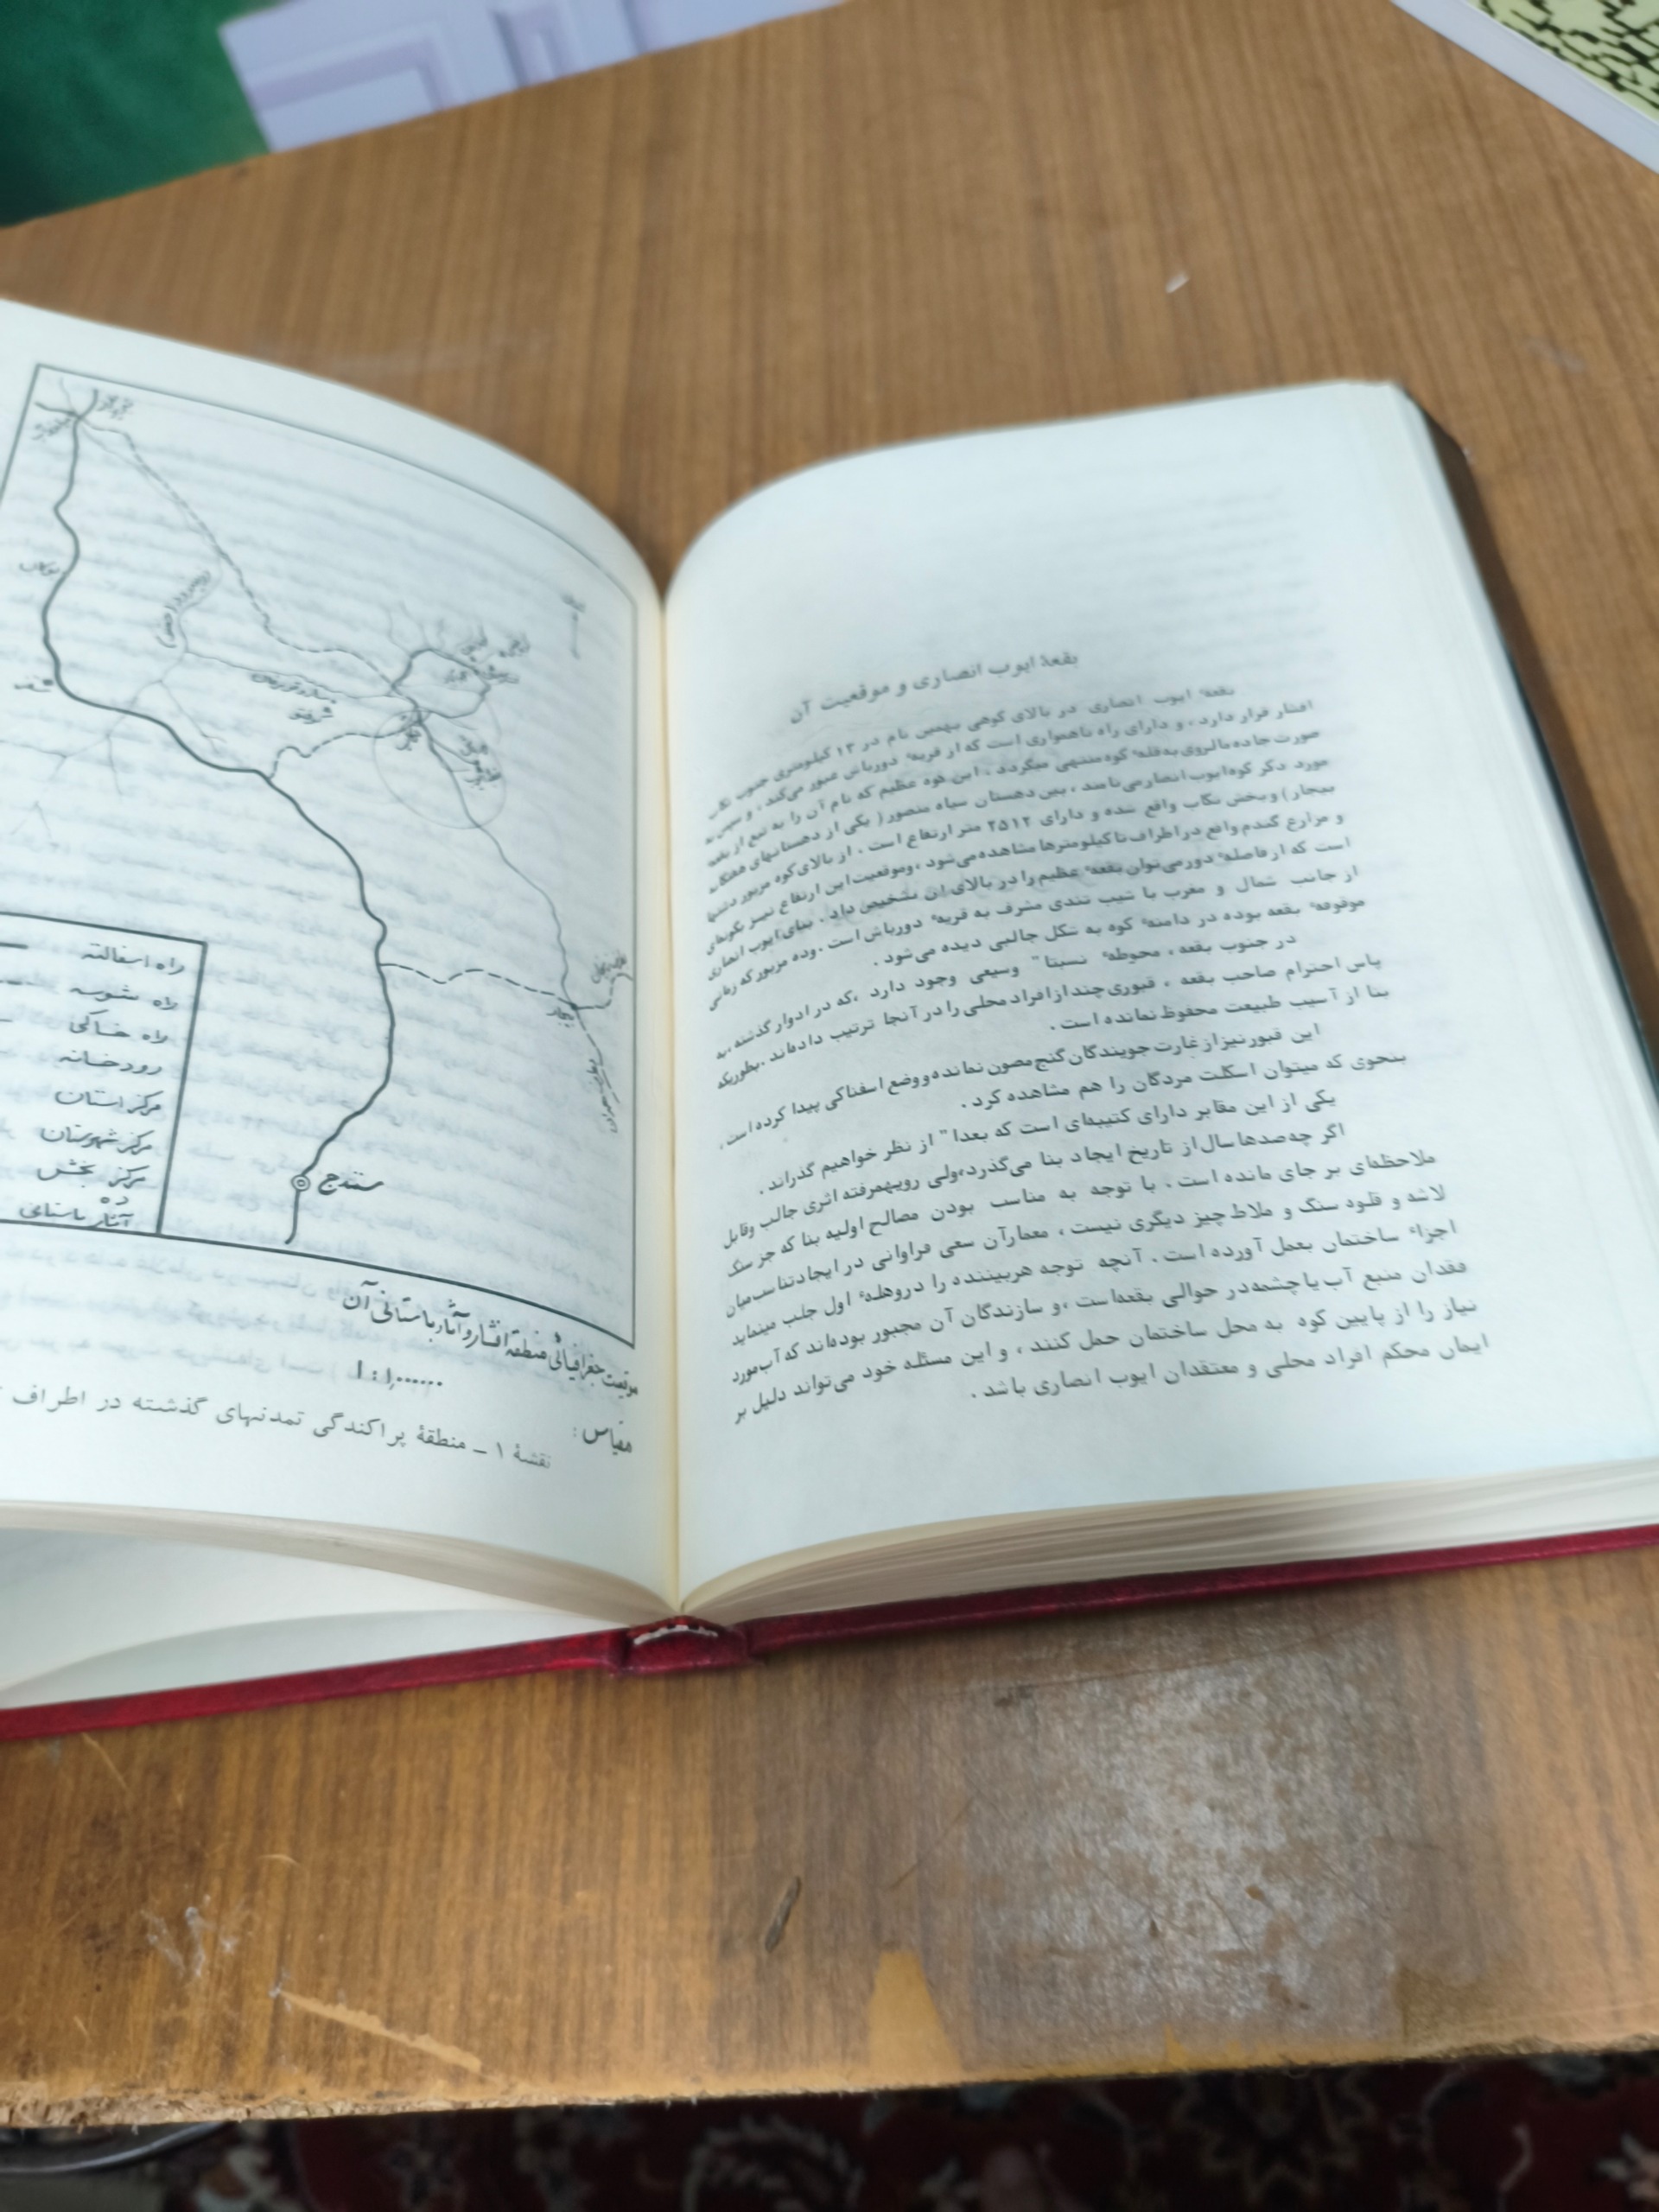 بقعهٔ ایوب انصاری و موقعیت آن
بقعهٔ ایوب انصاری در بالای کوهی بهمین نام در ۱۳ کیلومتری جنوب تکاب
افشار قرار دارد، و دارای راه ناهمواری است که از قریهٔ دورباش عبور می‌کند، و سپس به
صورت جاده مالروی به قلهٔ کوه منتهی میگردد. این کوه عظیم که نام آن را به تبع از بقعهٔ
مورد ذکر کوه ایوب انصار می‌نامند، بین دهستان سیاه منصور (یکی از دهستانهای هفتگانه
بیجار) و بخش تکاب واقع شده و دارای ۲۵۱۲ متر ارتفاع است. از بالای کوه مزبور دشتها
و مزارع گندم واقع در اطراف تا کیلومترها مشاهده می‌شود، و موقعیت این ارتفاع نیز بگونه‌ای
است که از فاصلهٔ دور می‌توان بقعهٔ عظیم را در بالای آن تشخیص داد. بنای ایوب انصاری
از جانب شمال و مغرب با شیب تندی مشرف به قریهٔ دورباش است. وده مزبور که زمانی
موقوفهٔ بقعه بوده در دامنهٔ کوه به شکل جالبی دیده می‌شود.
در جنوب بقعه، محوطهٔ نسبتا" وسیعی وجود دارد، که در ادوار گذشته، به
پاس احترام صاحب بقعه، قبوری چند از افراد محلی را در آنجا ترتیب داده‌اند. بطوریکه
بنا از آسیب طبیعت محفوظ نمانده است.
این قبور نیز از غارت جویندگان گنج مصون نمانده و وضع اسفناکی پیدا کرده است،
بنحوی که میتوان اسکلت مردگان را هم مشاهده کرد.
یکی از این مقابر دارای کتیبه‌ای است که بعدا" از نظر خواهیم گذراند.
اگر چه صدها سال از تاریخ ایجاد بنا می‌گذرد، ولی رویهمرفته اثری جالب وقابل
ملاحظه‌ای بر جای مانده است. با توجه به مناسب بودن مصالح اولیه بنا که جز سنگ
لاشه و قلوه سنگ و ملاط چیز دیگری نیست، معمار آن سعی فراوانی در ایجاد تناسب میان
اجزاءٔ ساختمان بعمل آورده است. آنچه توجه هر بیننده را در وهلهٔ اول جلب مینماید
فقدان منبع آب یا چشمه در حوالی بقعه است، و سازندگان آن مجبور بوده‌اند که آب مورد
نیاز را از پایین کوه به محل ساختمان حمل کنند، و این مسئله خود می‌تواند دلیل بر
ایمان محکم افراد محلی و معتقدان ایوب انصاری باشد.
سقز
بیجار
سنندج
راه اسفالته
راه شوسه
راه خاکی
رودخانه
مرکز استان
مرکز شهرستان
مرکز بخش
ده
آثار باستانی
موقعیت جغرافیائی منطقهٔ افشار و آثار باستانی آن
مقیاس: ۱:۱٫۰۰۰۰۰۰
نقشهٔ ۱ ـ منطقهٔ پراکندگی تمدنهای گذشته در اطراف